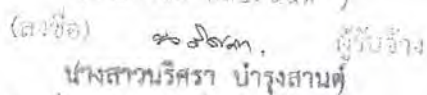 (ลงชื่อ) ผู้รับจ้าง
นางสาวนริศรา บำรุงสานต์